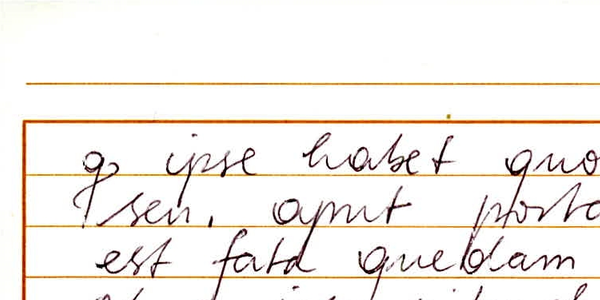 ipse habet quo
sen, aput porta
est fata quedam